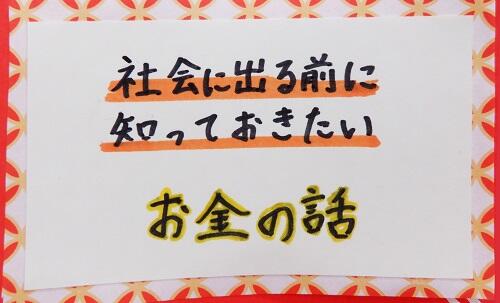 社会に出る前に
知っておきたい
お金の話